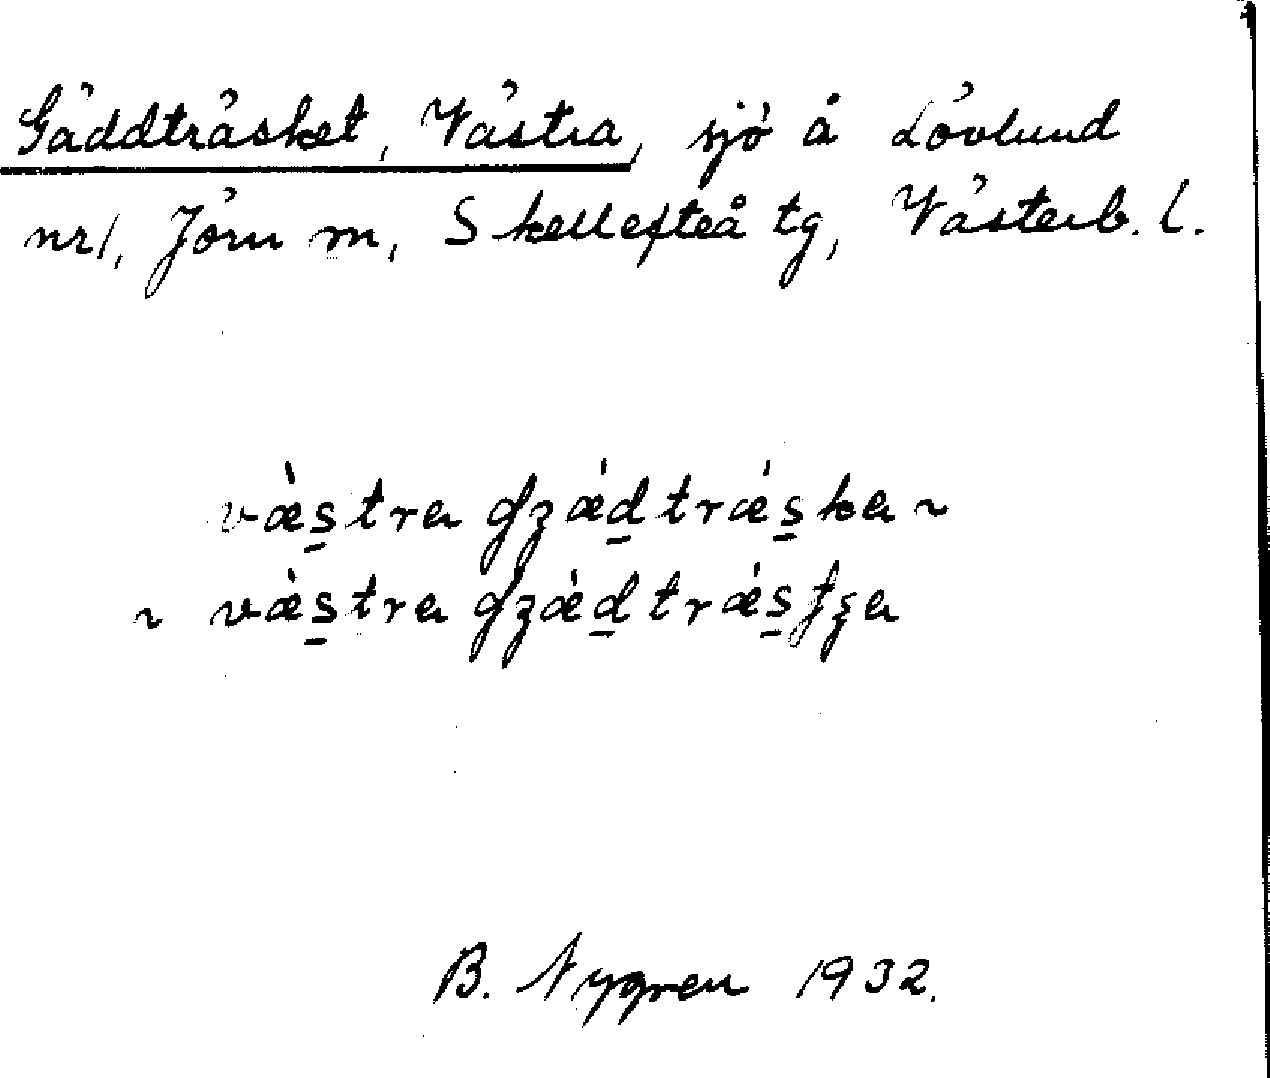 Gäddträsket, Västra, sjö å Lövlund
nr 1, Jörn sn, Skellefteå tg, Västerb. l.
vӕ̀s̲tra ʤӕ́d̲trӕ́s̲ka ~
~ vӕ̀s̲tra ʤӕ́d̲trӕ́s̲ʈʂa
B. Nygren 1932.